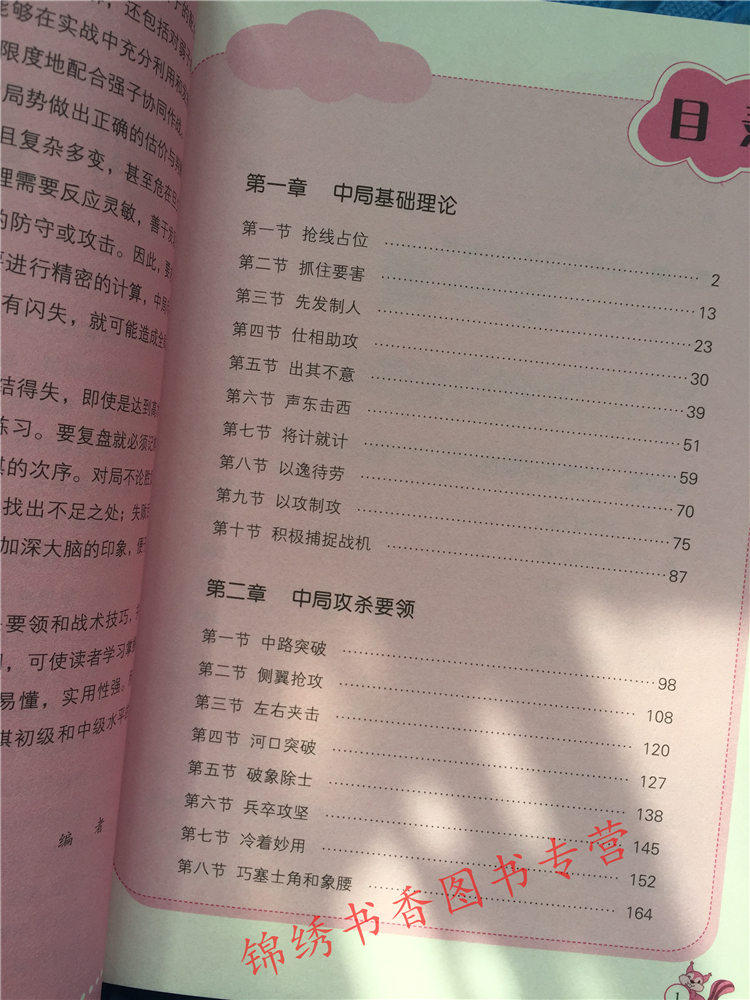 能够在实战中充分利用和
限度地配合强子协同作战
局势做出正确的估价与
且复杂多变，甚至危在
理需要反应灵敏，善于
的防守或攻击。因此，要
要进行精密的计算，中局
有闪失，就可能造成全
结得失，即使是达到高
练习。要复盘就必须记
棋的次序。对局不论胜
找出不足之处；失败
加深大脑的印象，便
要领和战术技巧，
可使读者学习掌
易懂，实用性强。
棋初级和中级水平的
编 者
目
第一章 中局基础理论
第一节 抢线占位 2
第二节 抓住要害 13
第三节 先发制人 23
第四节 仕相助攻 30
第五节 出其不意 39
第六节 声东击西 51
第七节 将计就计 59
第八节 以逸待劳 70
第九节 以攻制攻 75
第十节 积极捕捉战机 87
第二章 中局攻杀要领
第一节 中路突破 98
第二节 侧翼抢攻 108
第三节 左右夹击 120
第四节 河口突破 127
第五节 破象除士 138
第六节 兵卒攻坚 145
第七节 冷着妙用 152
第八节 巧塞士角和象腰 164
锦绣书香图书专营
1